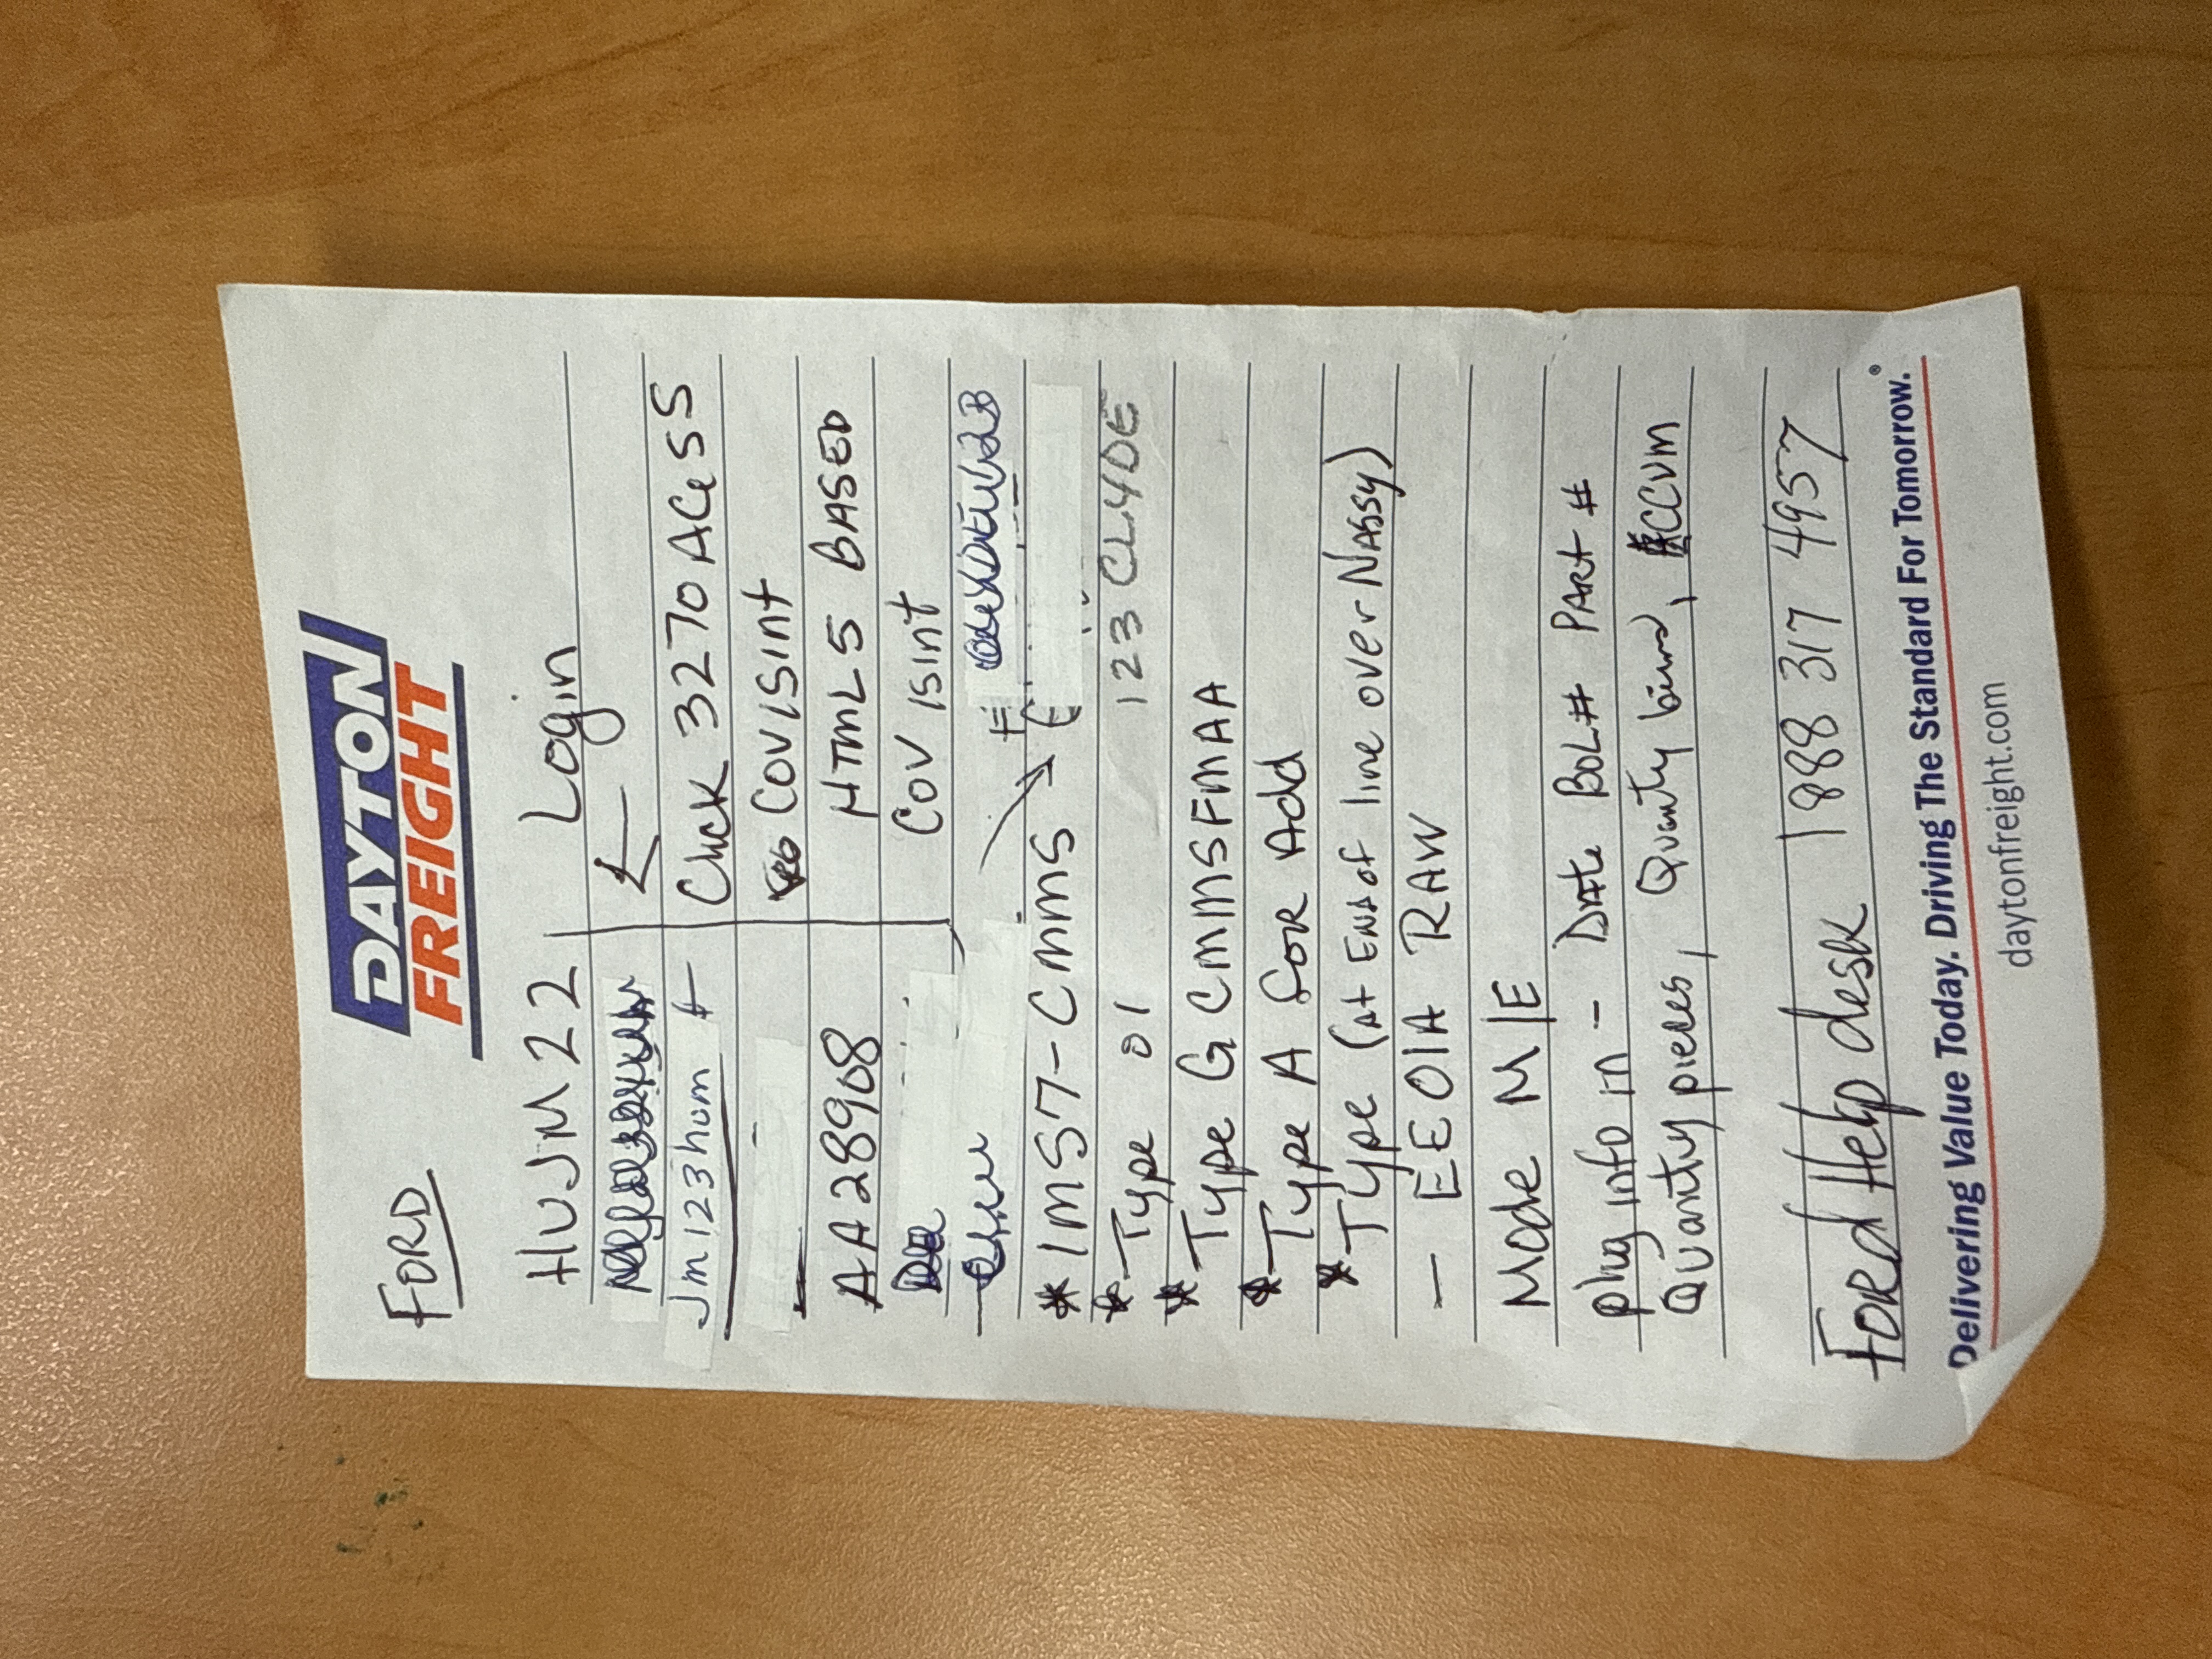 FORD
DAYTON
FREIGHT
HUJM22 Login
Jm123hum #
Click 3270 ACeSS
COVISInt
HTML5 BASED
AA28908
COVISInt
* IMS7-CMMS
* Type 01 123CLYDE
* Type G CMMSFMAA
* Type A for Add
* Type (At End of line over NASSY)
— EEOIA RAW
Mode M/E
plug info in - Date BOL# PArt #
Quantity pieces, CCVM
FORD Help desk 1888 317 4957
Delivering Value Today. Driving The Standard For Tomorrow.®
daytonfreight.com